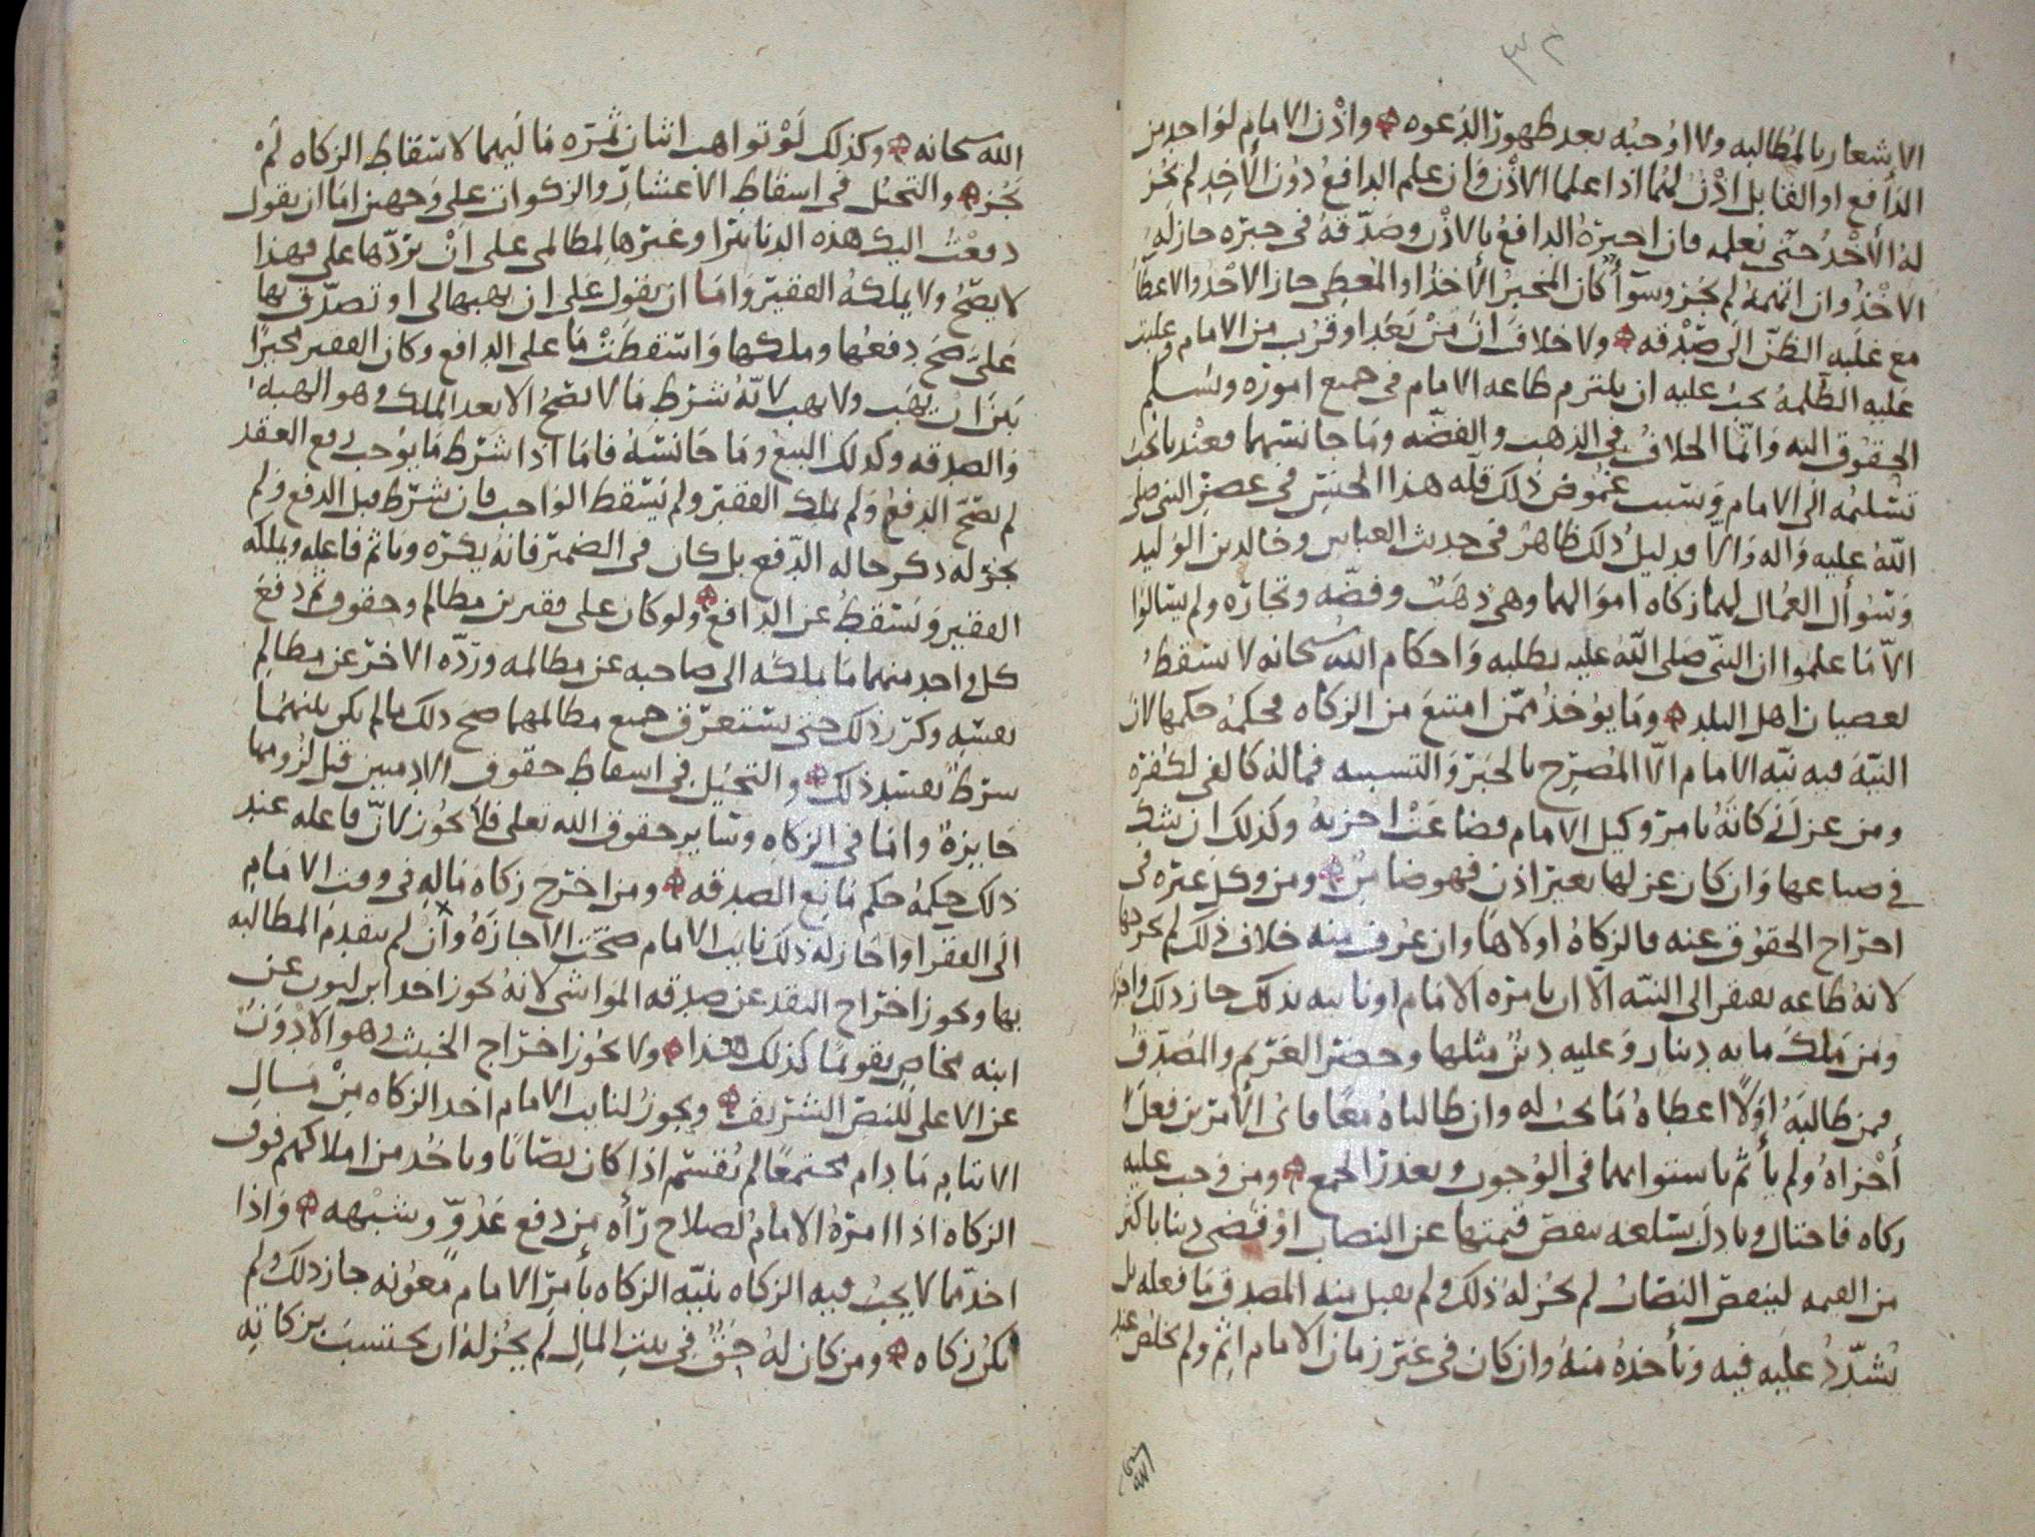 ٣٢
الاشعار بالمطالبه ولا اوجبه بعد ظهور الدعوه واذن الامام لواحد من
الدافع او القابل اذن لهما اذا علما الاذن وان علم الدافع دون الآخذ لم يجز
له الأخذ حتى يعلمه فان اخبره الدافع بالاذن وصدقه في خبره جاز له
الاخذ وان اتهمه لم يجز وسوآ كان المخبر الآخذ او المعطي جاز الاخذ والاعطا
مع غلبه الظن الى صدقه ولا خلاف ان من بعد او قرب من الامام وغلبت
عليه الظلمه يجب عليه ان يلتزم طاعه الامام في جميع اموره ويسلم
الحقوق اليه وانما الخلاف في الذهب والفضه وما جانسهما فعندنا يجب
تسليمه الى الامام وسبب غموض ذلك قله هذا الجنس في عصر النبي صلى
الله عليه واله والا فدليل ذلك ظاهر في حديث العباس وخالد بن الوليد
وسؤال العمال لهما زكاه اموالهما وهي ذهب وفضه وتجاره ولم يسالوا
الا ما علموا ان النبي صلى الله عليه يطلبه واحكام الله سبحانه لا تسقط
بعصيان اهل البلد وما يؤخذ ممن امتنع من الزكاه فحكمه حكمها لان
النيه فيه نيه الامام الا المصرح بالجبر والتشبيه فماله كالفي لكفره
ومن عزل زكاته بامر وكيل الامام فضاعت اجزته وكذلك ان شك
في ضياعها وان كان عزلها بغير اذن فهو ضامن ومن وكل غيره في
اخراج الحقوق عنه فالزكاه اولاها وان عرف منه خلاف ذلك لم يخرجها
لانه طاعه تفتقر الى النيه الا ان يامره الامام او نايبه بذلك جاز ذلك واجزا
ومن ملك مايه دينار وعليه دين مثلها وحضر الغريم والمصدق
فمن طالبه اولا اعطاه ما يجب له وان طالباه معا فاي الأمرين فعل
أجزاه ولم يأثم باستوائهما في الوجوب وتعذر الجمع ومن وجب عليه
زكاه فاحتال وبادل بسلعه تنقص قيمتها عن النصاب او قضى دينا باكثر
من القيمه لينقص النصاب لم يجز له ذلك ولم يقبل منه المصدق ما فعله بل
يشدد عليه فيه ويأخذه منه وان كان في غير زمان الامام اثم ولم يخلص عند
الله سبحانه وكذلك لو تواهب اثنان ثمره ماليهما لاسقاط الزكاه لم
يجز والتحيل في اسقاط الاعشار والزكوات على وجهين اما ان يقول
دفعت اليك هذه الدنانير او غيرها لمظالمي على ان تردها علي فهذا
لا يصح ولا يملكه الفقير واما ان يقول على ان تهبها لي او تصدق بها
علي صح دفعها وملكها واسقطت ما على الدافع وكان الفقير مخيرا
بين ان يهب ولا يهب لانه شرط ما لا يصح الا بعد الملك وهو الهبه
والصدقه وكذلك البيع وما جانسه فاما اذا شرط ما يوجب رفع العقد
لم يصح الدفع ولم يملك الفقير ولم يسقط الواجب فان شرط قبل الدفع ولم
يجز له ذكر حاله الدفع بل كان في الضمير فانه يكره وياثم فاعله ويملكه
الفقير وتسقط عن الدافع ولو كان على فقيرين مظالم وحقوق ثم دفع
كل واحد منهما ما يملكه الى صاحبه عن مظالمه ورده الاخر عن مظالم
نفسه وكرر ذلك حتى يستغرق جميع مظالمهما صح ذلك ما لم يكن بينهما
شرط يفسد ذلك والتحيل في اسقاط حقوق الادميين قبل لزومها
جايزه واما في الزكاه وساير حقوق الله تعلى فلا يجوز لان فاعله عند
ذلك حكمه حكم مانع الصدقه ومن اخرج زكاه ماله في وقت الامام
الى الفقرا واجاز له ذلك نايب الامام صحت الاجازه وان لم يتقدم المطالبه
بها ويجوز اخراج النقد عن صدقه المواشي لانه يجوز اخذ ابن لبون عن
ابنه مخاض تقويما كذلك هذا ولا يجوز اخراج الخبيث وهو الادون
عن الاعلى للنص الشريف ويجوز لنايب الامام اخذ الزكاه من مال
الايتام ما دام مجتمعا لم يقسم اذا كان نصابا وياخذ من املاكهم فوق
الزكاه اذا امره الامام لصلاح رأه من دفع عدو وشبهه واذا
اخذ مما لا يجب فيه الزكاه بنيه الزكاه بأمر الامام معونه جاز ذلك ولم
يكن زكاه ومن كان له حق في بيت المال لم يجز له ان يحتسب من زكاته